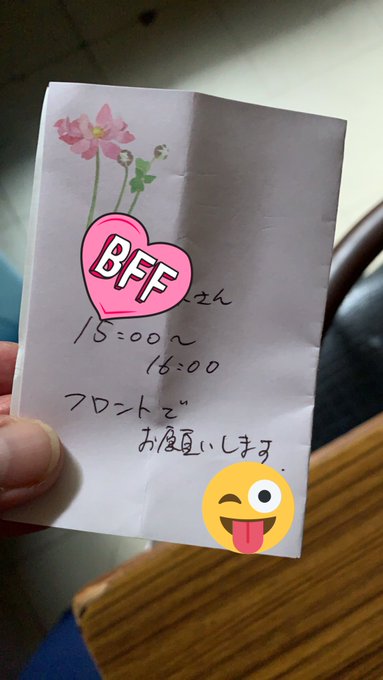 BFF
さん
15:00～
16:00
フロントで
お願いします.